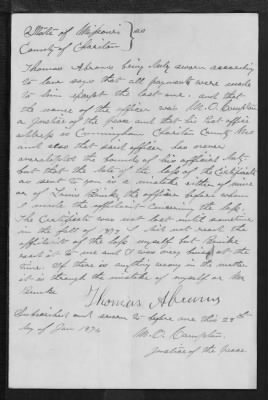 State of Missouri } as
County of Chariton
Thomas Abrams being duly sworn according
to law says that all payments were made
to him except the last one, and that
the name of the officer was M. O. Compton
a Justice of the peace and that his Post office
address is Cunningham Chariton County Mo
and also that said officer has never
the bounds of his official duty
but that the date of the loss of the Certificate
as sent to you is a mistake either of mine
or of Louis Benecke the officer before whom
I made the affidavit concerning the loss
The Certificate was not lost until sometime
in the fall of 1877 I did not read the
affidavit of the loss myself but Benecke
read it to me and I was very busy at the
time. If there is anything wrong in the matter
it is through the mistake of myself or Mr
Benecke
Thomas Abrams
Subscribed and sworn to before me this 28th
day of Jan
M. O. Compton
Justice of the Peace